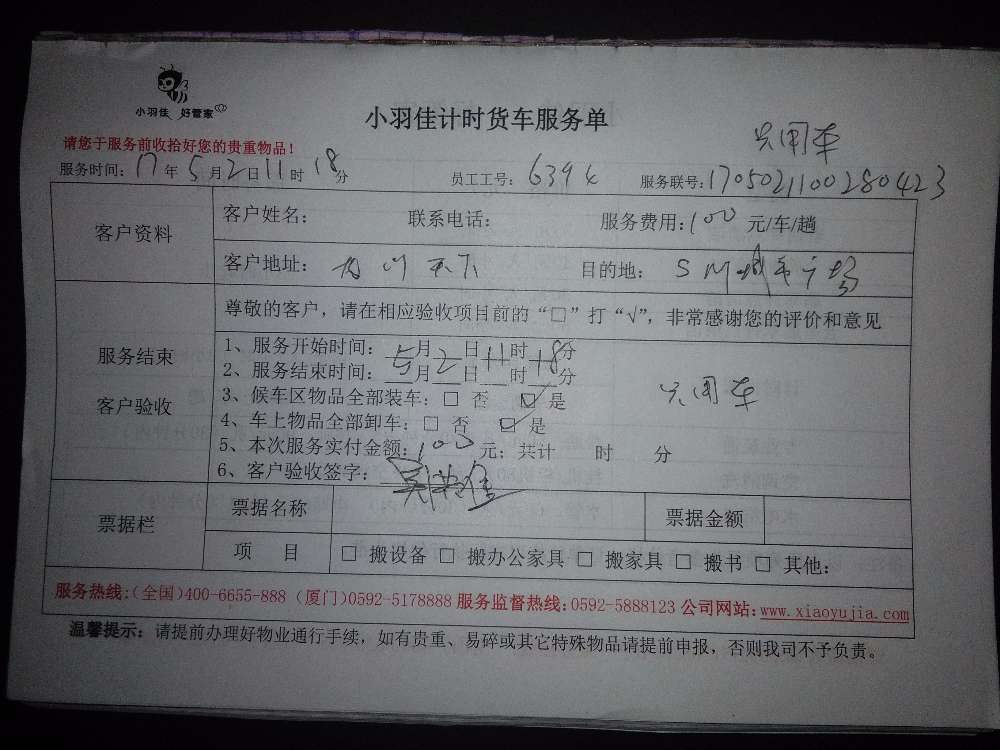 小羽佳 好管家
小羽佳计时货车服务单
只用车
请您于服务前收拾好您的贵重物品！
服务时间：17年5月2日11时18分 员工工号：6394 服务联号：1705021100280423
客户资料
客户姓名： 联系电话： 服务费用：100元/车/趟
客户地址： 目的地：SM城市广场
尊敬的客户，请在相应验收项目前的“□”打“√”，非常感谢您的评价和意见
服务结束
客户验收
1、服务开始时间：5月2日11时18分
2、服务结束时间：___月___日___时___分
3、候车区物品全部装车：□ 否 ☑ 是
4、车上物品全部卸车：□ 否 ☑ 是
5、本次服务实付金额：100元；共计 时 分
6、客户验收签字：
只用车
票据栏
票据名称 票据金额
项 目 □ 搬设备 □ 搬办公家具 □ 搬家具 □ 搬书 □ 其他：
服务热线：(全国)400-6655-888 (厦门)0592-5178888 服务监督热线：0592-5888123 公司网站：www.xiaoyujia.com
温馨提示：请提前办理好物业通行手续，如有贵重、易碎或其它特殊物品请提前申报，否则我司不予负责。